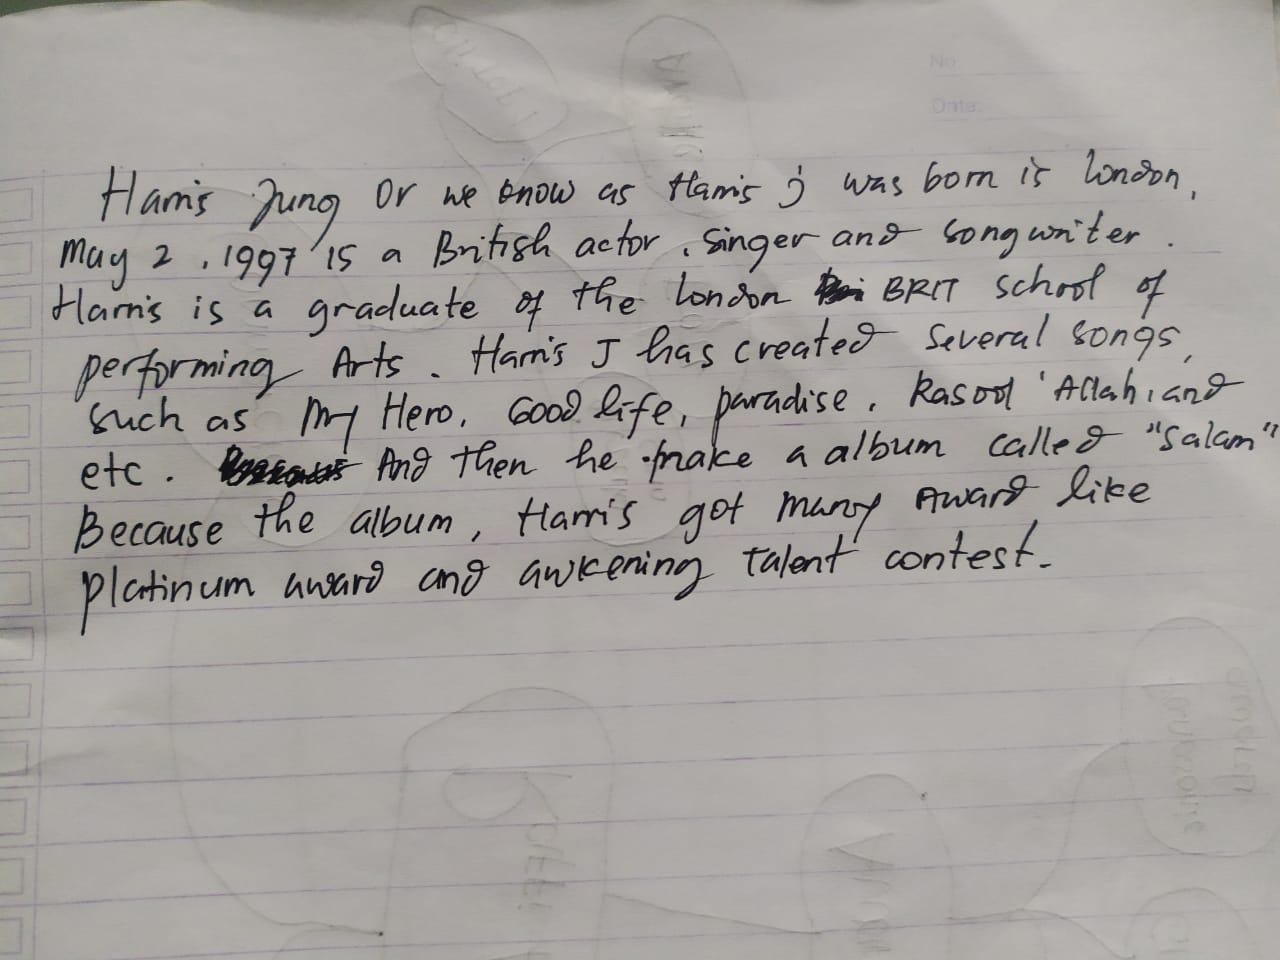 No
Date:
Harris Jung or we know as Harris j was born is london,
may 2, 1997 is a British actor, singer and songwriter.
Harris is a graduate of the london BRIT school of
performing Arts. Harris J has created several songs,
such as My Hero, Good life, paradise, Rasool 'Allah, and
etc. And then he make a album called "Salam"
Because the album, Harris got many Award like
platinum award and awkening talent contest.